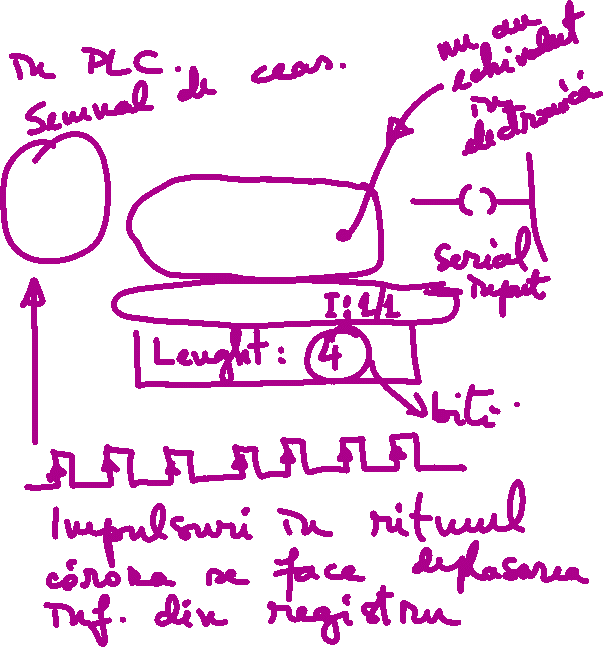 În PLC.
Semnal de ceas.
nu au
echivalent
în
electronică
Serial
Input
I:1/1
Lenght: 4
biti.
Impulsuri în ritmul
cărora se face deplasarea
inf. din registru